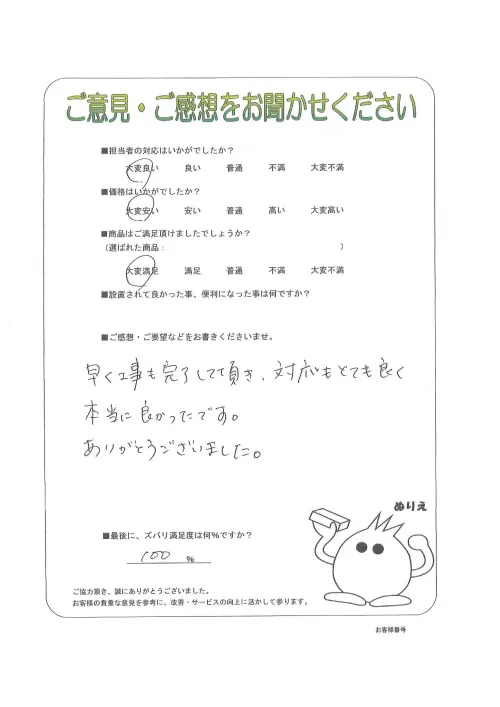 ご意見・ご感想をお聞かせください
■担当者の対応はいかがでしたか？
大変良い 良い 普通 不満 大変不満
■価格はいかがでしたか？
大変安い 安い 普通 高い 大変高い
■商品はご満足頂けましたでしょうか？
（選ばれた商品： ）
大変満足 満足 普通 不満 大変不満
■設置されて良かった事、便利になった事は何ですか？
■ご感想・ご要望などをお書きくださいませ。
早く工事も完了して頂き、対応もとても良く
本当に良かったです。
ありがとうございました。
ぬりえ
■最後に、ズバリ満足度は何％ですか？
100 ％
ご協力頂き、誠にありがとうございました。
お客様の貴重な意見を参考に、改善・サービスの向上に活かして参ります。
お客様番号